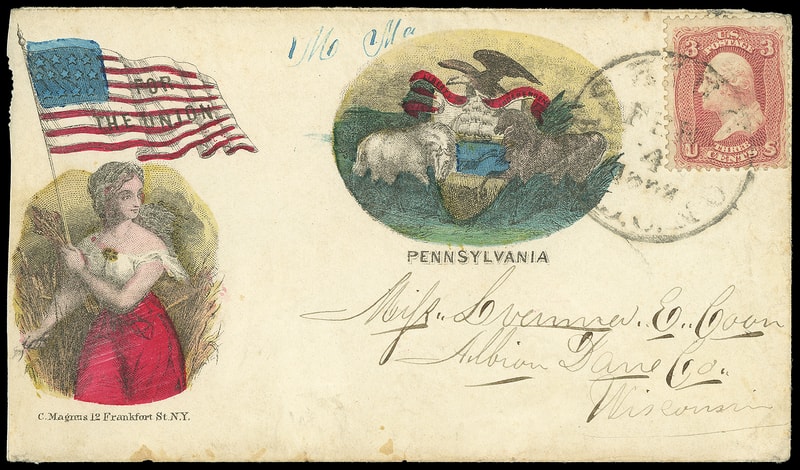 Mo Ma
FOR
THE UNION
3 U.S. 3
POSTAGE
THREE
U CENTS S
FEB
4
PENNSYLVANIA
Miss. E. Coon
Albion Dane Co.
Wisconsin
C. Magnus 12 Frankfort St. N.Y.